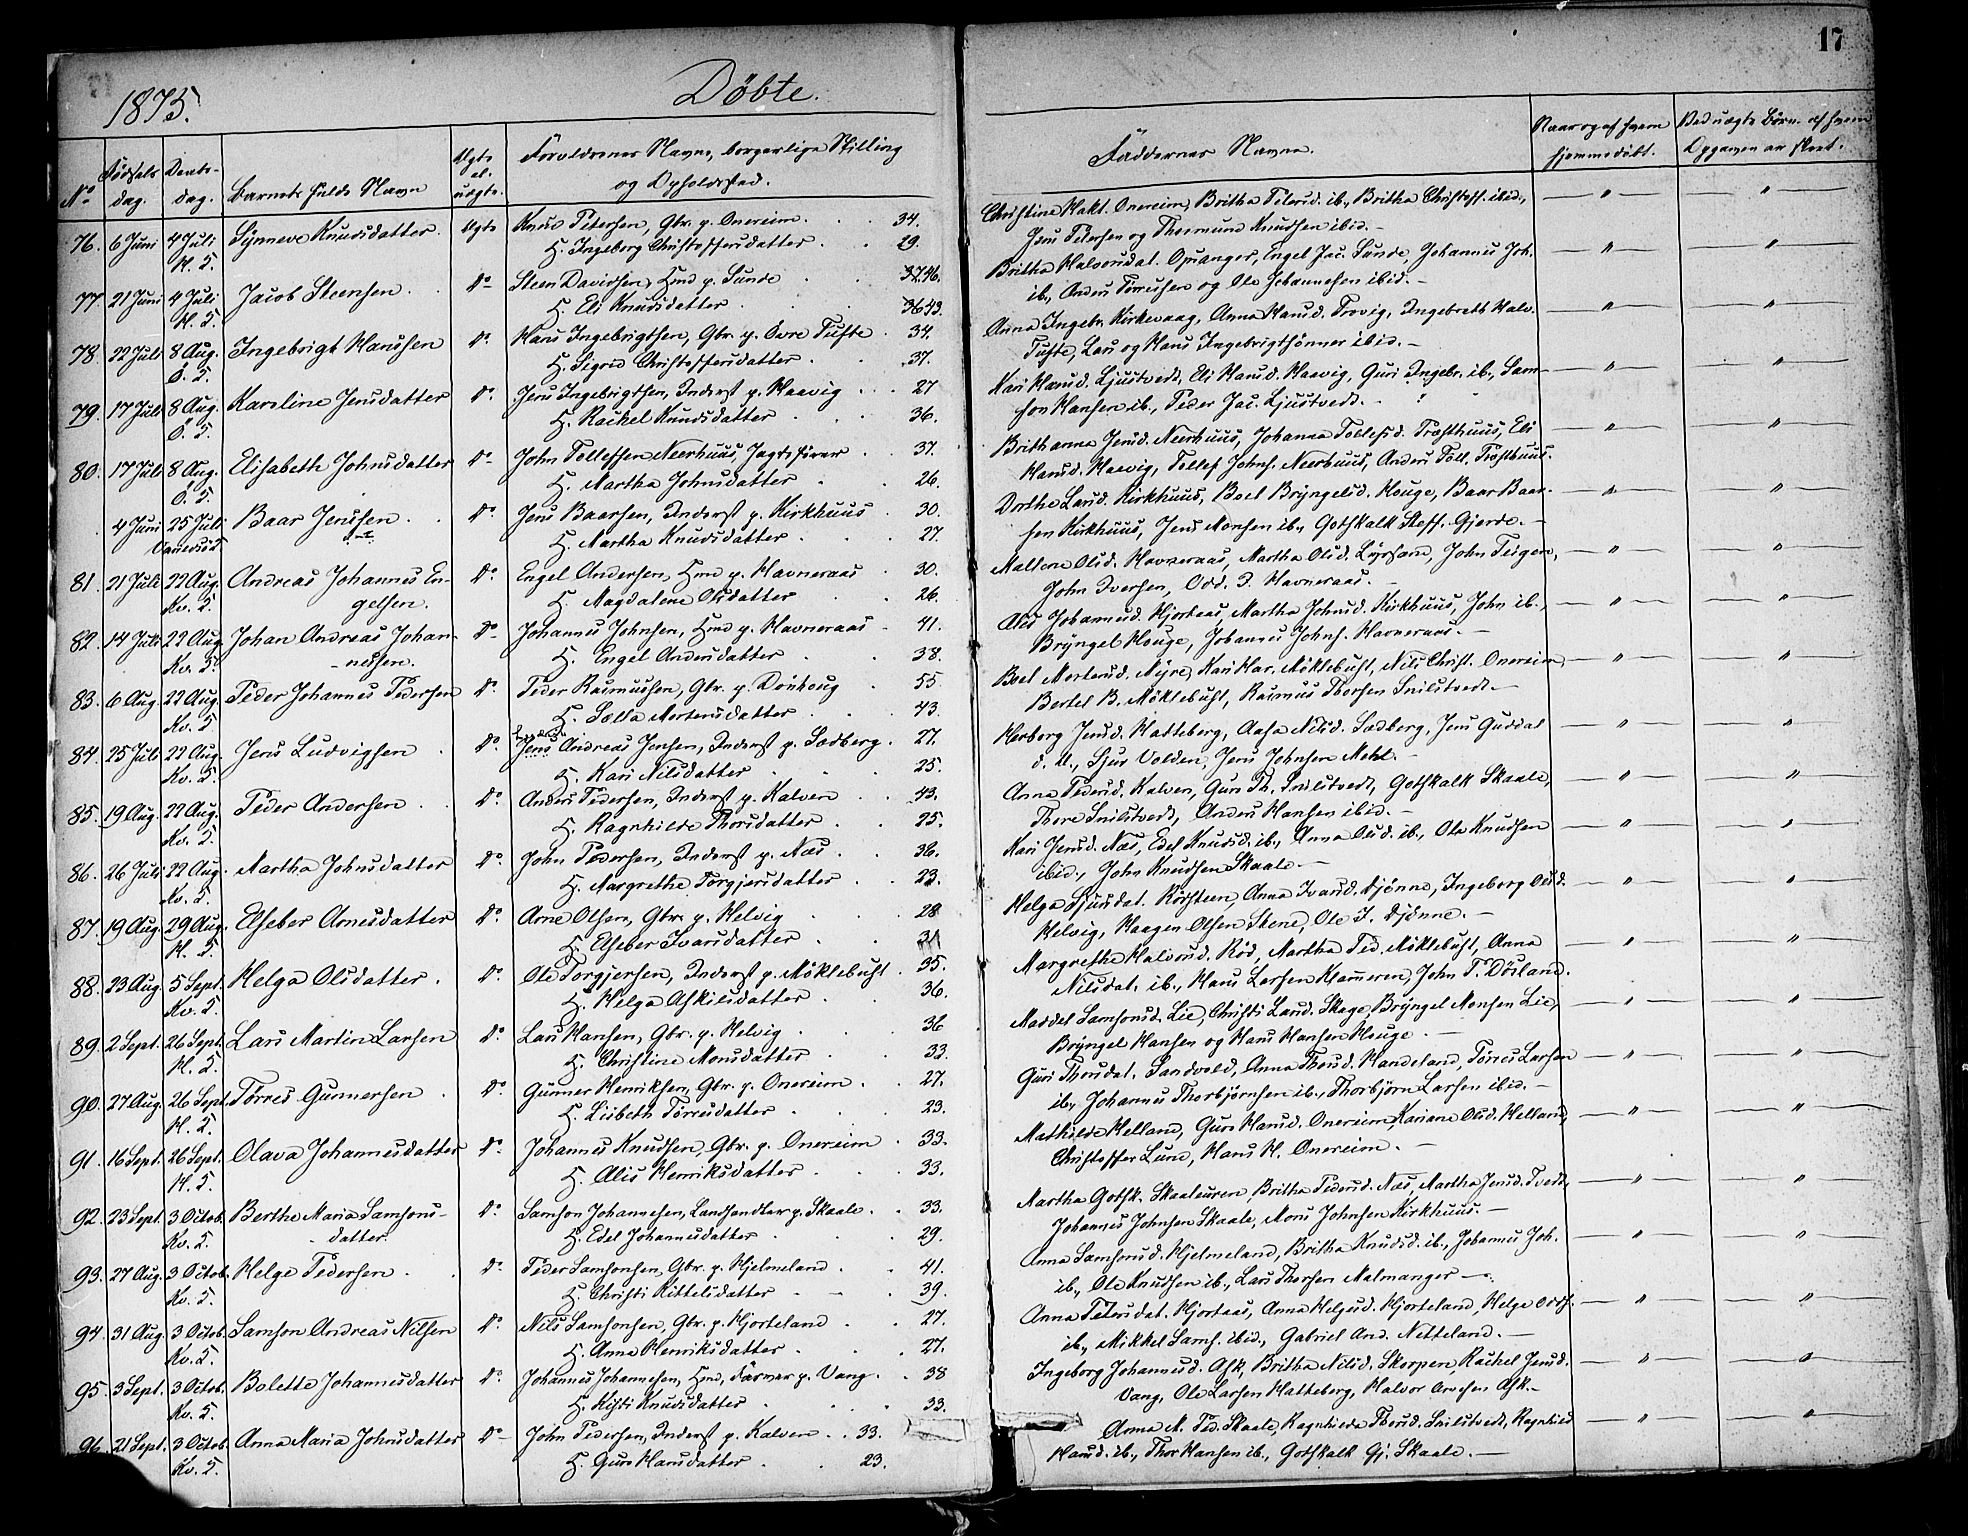 17
1875.
Döbte.
No
Fødselsdag.
Daabsdag.
Barnets fulde Navn
Ægte el. uægte.
Forældrenes Navne, borgerlige Stilling
og Opholdssted.
Faddernes Navne.
Naar og af hvem
hjemmedøbt.
Ved uægte Börn af hvem
Opgaven er skeet.
76. 6 Juni 4 Juli Synneve Knudsdatter. Ægte Knud Petersen, Gbr. p. Onereim. 34.
H. T. H. Ingeborg Christoffersdatter 29.
77. 21 Juni 4 Juli Jacob Steensen. Do Steen Davidsen, Hmd p. Sunde
H. T. H. Eli Knudsdatter
78. 22 Juli 8 Aug. Ingebrigt Hansen Do Hans Ingebrigtsen, Gbr. p. Övre Tufte 34.
Ö. T. H. Sigrid Christoffersdatter 37.
79. 17 Juli 8 Aug. Karoline Jensdatter Do Jens Ingebrigtsen, Inderst p. Haavig 27
Ö. T. H. Rachel Knudsdatter 36.
80. 17 Juli 8 Aug. Elisabeth Johnsdatter Do John Tollefsen Neerhuus, Jagtfører 37.
Ö. T. H. Martha Johnsdatter 26.
4 Juni 25 Juli Baar Jenssen. Do Jens Baarsen, Inderst p. Kirkhuus 30.
H. Martha Knudsdatter 27.
81. 21 Juli 22 Aug. Andreas Johannes En- Do Engel Andersen, Hmd p. Havneraas 30.
Kv. T. gelsen. H. Magdalene Olsdatter 26.
82. 14 Juli 22 Aug. Johan Andreas Johan- Do Johannes Johnsen, Hmd p. Havneraas 41.
Kv. T. nessen. H. Engel Andersdatter 38.
83. 6 Aug. 22 Aug. Peder Johannes Pedersen Do Peder Rasmussen, Gbr. p. Dönhoug 55
Kv. T. H. Sella Mortensdatter 43.
84. 25 Juli 22 Aug. Jens Ludvigsen Do Jens Andreas Jensen, Inderst p. Sodberg 27.
Kv. T. H. Kari Nilsdatter 25.
85. 19 Aug. 22 Aug. Peder Andersen Do Anders Pedersen, Inderst p. Kalven 43.
Kv. T. H. Ragnhilde Thorsdatter 25.
86. 26 Juli 22 Aug. Martha Johnsdatter Do John Pedersen, Inderst p. Næs 36.
Kv. T. H. Margrethe Torgjersdatter 23.
87. 19 Aug. 29 Aug. Elseber Arnesdatter Do Arne Olsen, Gbr. p. Helvig 28
H. T. H. Elseber Ivarsdatter 31
88. 23 Aug. 5 Sept. Helga Olsdatter. Do Ole Torgjersen, Inderst p. Möklebust 35.
Kv. T. H. Helga Askilsdatter 36.
89. 2 Sept. 26 Sept. Lars Martin Larsen Do Lars Hansen, Gbr. p. Helvig 36
H. T. H. Christine Monsdatter 33.
90. 27 Aug. 26 Sept. Törres Gunnersen Do Gunner Henriksen, Gbr. p. Onereim 27.
H. T. H. Lisbeth Törresdatter 23.
91. 16 Sept. 26 Sept. Olava Johannesdatter Do Johannes Knudsen, Gbr. p. Onereim 33.
H. T. H. Alis Henriksdatter 33.
92. 23 Sept. 3 Octob. Berthe Maria Samsons- Do Samson Johannesen, Landhandler p. Skaale. 33.
Kv. T. datter. H. Edel Johannesdatter 29.
93. 27 Aug. 3 Octob. Helge Pedersen Do Peder Samsonsen, Gbr. p. Hjelmeland 41.
Kv. T. H. Christi Kittelsdatter 39.
94. 31 Aug. 3 Octob. Samson Andreas Nilsen Do Nils Samsonsen, Gbr. p. Hjorteland 27.
Kv. T. H. Anna Henriksdatter 27.
95. 3 Sept. 3 Octob. Bolette Johannesdatter Do Johannes Johannesen, Hmd, Farver p. Vang 38
Kv. T. H. Kisti Knudsdatter 33.
96. 21 Sept. 3 Octob. Anna Maria Johnsdatter Do John Pedersen, Inderst p. Kalven 33.
Kv. T. H. Guro Hansdatter 23.
Christine Onereim, Britha ib., Britha Christoff. ibid.,
Jens Pedersen og Thormund Knudsen ibid.
Britha Halvorsdat. Opsanger, Engel Jac. Sunde, Johannes Joh.
ib., Anders Törresen og Ole Johannesen ibid.
Anna Ingebr. Kirkevaag, Anna Hansd. Trovig, Ingebreth Halv.
Tufte, Lars og Hans Ingebrigtsönner ibid.
Kari Hansd. Ljustvedt, Eli Hansd. Haavig, Guri Ingebr. ib., Sam-
son Hansen ib., Peder Jac. Ljustvedt.
Brithanna Jensd. Neerhuus, Johanna Tollefsd. Træsthuus, Eli
Hansd. Haavig, Tollef Johns. Neerhuus, Anders Toll. Træsthuus.
Dorthe Larsd. Kirkhuus, Boel Bryngelsd. Houge, Baar Baar-
sen Kirkhuus, Jens Monsen ib., Gotskalk Steff. Gjerde.
Maltene Olsd. Havneraas, Martha Olsd. Teigen,
John Iversen, Odd. J. Havneraas.
Alis Johannesd. Hjortaas, Martha Johnsd. Kirkhuus, John ib.,
Bryngel Houge, Johannes Johns. Havneraas.
Boel Mortensd. Myre, Kari Har. Möklebust, Nils Christ. Onereim,
Bertel B. Möklebust, Rasmus Thorsen Snilstvedt.
Herborg Jensd. Hatteberg, Aasa Nilsd. Sodberg, Jens Guddal
d. U., Sjur Volden, Jens Johnsen Mehl.
Anna Pedersd. Kalven, Guro Th. Snilstvedt, Gotskalk Skaale,
Thore Snilstvedt, Anders Hansen ibid.
Kari Jensd. Næs, Edel Knudsd. ib., Anna Olsd. ib., Ole Knudsen
ibid., John Knudsen Skaale.
Helga Sjursdat. Rörsteen, Anna Ivarsd. Djönne, Ingeborg Olsd.
Helvig, Haagen Olsen Stene, Ole I. Djönne.
Margrethe Halvorsd. Röd, Martha Ped. Möklebust, Anna
Nilsdat. ib., Hans Larsen Kammeren, John T. Dösland.
Maddel Samsonsd. Lie, Christi Larsd. Skage, Bryngel Monsen Lie,
Bryngel Hansen og Hans Hansen Houge.
Guri Thorsdat. Sandvold, Anna Thorsd. Handeland, Törres Larsen
ib., Johannes Thorbjörnsen ib., Thorbjörn Larsen ibid.
Mathilde Helland, Guro Hansd. Onereim, Kariane Olsd. Helland,
Christoffer Lund, Hans H. Onereim.
Martha Gotsk. Skaaleuren, Britha Pedersd. Næs, Martha Jensd. Tvedt,
Johannes Johnsen Skaale, Mons Johnsen Kirkhuus.
Anna Samsonsd. Hjelmeland, Britha Knudsd. ib., Johannes Joh.
ib., Ole Knudsen ib., Lars Thorsen Malmanger
Anna Petersdat. Hjortaas, Anna Helgesd. Hjorteland, Helge Odds.
ib., Mikkel Sams. ibid., Gabriel And. Netteland.
Ingeborg Johannesd. Ask, Britha Nilsd. Skorpen, Rachel Jensd.
Vang, Ole Larsen Hatteberg, Halvor Arvesen Ask.
Anna M. Ped. Skaale, Ragnhilde Thorsd. Snilstvedt, Ragnhild
Hansd. ib., Thor Hansen ib., Gotskalk Gj. Skaale.